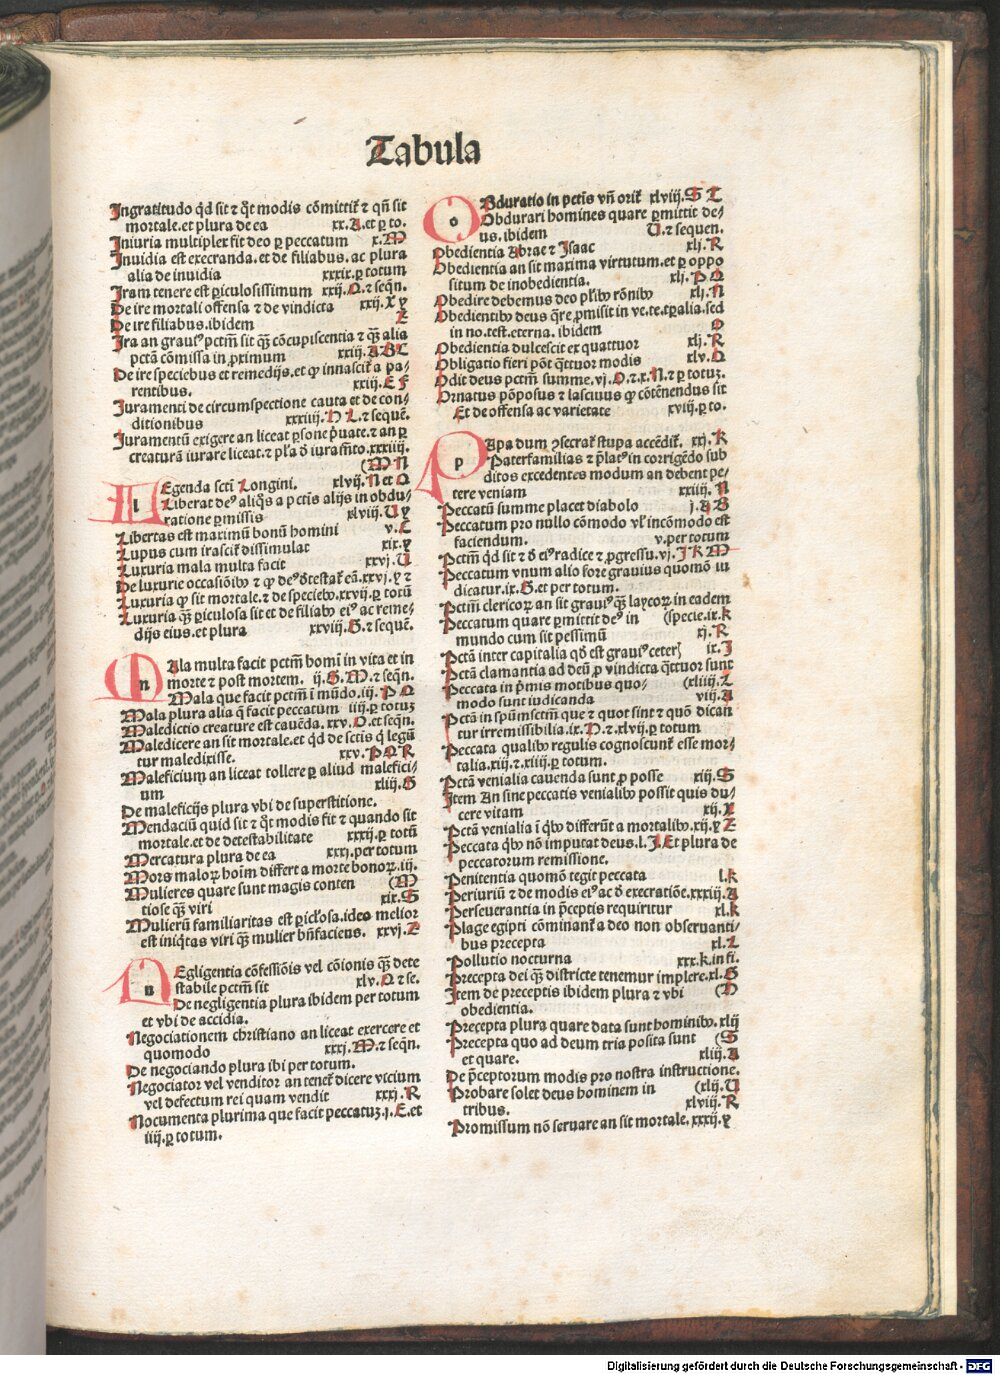 Tabula
Ingratitudo q̄d sit ⁊ q̄t modis cōmittit̄ ⁊ qn̄ sit
mortale.et plura de ea xx.A.et ꝑ to.
Iniuria multiplex fit deo ꝑ peccatum x.M
Inuidia est execranda.et de filiabus.ac plura
alia de inuidia xxxix.ꝑ totum
Iram tenere est ꝑiculosissimum xxij.Q.⁊ seqn̄.
De ire mortali offensa ⁊ de vindicta xxij.X y
De ire filiabus.ibidem Z
Ira an grauiꝰ pctm̄ sit q̄ȝ cōcupiscentia ⁊ q̄ȝ alia
pctā cōmissa in ꝓximum xxiij.A B C
De ire speciebus et remedijs.et ꝙ innascit̄ a pa⸗
rentibus. xxiij.E F
Iuramenti de circumspectione cauta et de con⸗
ditionibus xxxiiij.H L.⁊ sequē.
Iuramentū exigere an liceat ꝑsone p̄uate.⁊ an ꝑ
creaturā iurare liceat.⁊ pl̄a d̄ iuram̄to.xxxiiij.
(M N
l
Egenda sctī Longini. xlvij.N et O
Liberat deꝰ aliq̄s a pctīs alijs in obdu⸗
ratione ꝑmissis xlviij.U y
Libertas est maximū bonū homini v.C
Lupus cum irascit̄ dissimulat xix.y
Luxuria mala multa facit xxvj.U
De luxurie occasiōibꝰ ⁊ ꝙ deꝰ d̄testat̄ eā.xxvj.y ⁊
Luxuria ꝙ sit mortale.⁊ de speciebꝰ.xxvij.ꝑ totū
Luxuria q̄ȝ ꝑiculosa sit et de filiabꝰ eiꝰ ac reme⸗
dijs eius.et plura xxviij.G.⁊ sequē.
m
Ala multa facit pctm̄ homī in vita et in
morte ⁊ post mortem. ij.G.M.⁊ seqn̄.
Mala que facit pctm̄ ī mūdo.iij.P Q
Mala plura alia q̄ facit peccatum iiij.ꝑ totuȝ
Maledictio creature est cauēda.xxv.O.et seqn̄.
Maledicere an sit mortale.et q̄d de sctīs q̄ legū
tur maledixisse. xxv.P Q R
Maleficium an liceat tollere ꝑ aliud malefici⸗
um xliij.G
De maleficijs plura vbi de superstitione.
Mendaciū quid sit ⁊ q̄t modis fit ⁊ quando sit
mortale.et de detestabilitate xxxij.ꝑ totū
Mercatura plura de ea xxxj.per totum
Mors maloꝝ hoīm differt a morte bonoꝝ.iij.
Mulieres quare sunt magis conten (M
tiose q̄ȝ viri xix.S
Mulierū familiaritas est ꝑicl̄osa.ideo melior
est iniq̄tas viri q̄ȝ mulier bn̄faciens. xxvj.Z
n
Egligentia cōfessiōis vel cōionis q̄ȝ dete
stabile pctm̄ sit xlv.Q ⁊ se.
De negligentia plura ibidem per totum
et vbi de accidia.
Negociationem christiano an liceat exercere et
quomodo xxxj.M.⁊ seqn̄.
De negociando plura ibi per totum.
Negociator vel venditor an tenet̄ dicere vicium
vel defectum rei quam vendit xxxj.R
Nocumenta plurima que facit peccatuȝ.j.E.et
iiij.ꝑ totum.
o
Bduratio in pctīs vn̄ orit̄ xlviij.S T
Obdurari homines quare ꝑmittit de⸗
us.ibidem U.⁊ sequen.
Obedientia Abrae ⁊ Isaac xlj.R
Obedientia an sit maxima virtutum.et ꝑ oppo
situm de inobedientia. xlj.P Q
Obedire debemus deo pl̄ibꝰ rōnibꝰ xlj.N
Obedientibꝰ deus q̄re ꝓmisit in ve.te.tp̄alia.sed
in no.test.eterna. ibidem O
Obedientia dulcescit ex quattuor xlj.R
Obligatio fieri pōt q̄ttuor modis xlv.O
Odit deus pctm̄ summe.vj.O.⁊.x.N.⁊ ꝑ totuȝ.
Ornatus pōposus ⁊ lasciuus ꝙ cōtēnendus sit
Et de offensa ac varietate xviij.ꝑ to.
p
Apa dum ꝯsecrat̄ stupa accēdit̄. xxj.K
Paterfamilias ⁊ p̄latꝰ in corrigēdo sub
ditos excedentes modum an debent pe⸗
tere veniam xxiiij.N
Peccatū summe placet diabolo j.A B
Peccatum pro nullo cōmodo vl̓ incōmodo est
faciendum. v.per totum
Pctm̄ q̄d sit ⁊ d̄ eiꝰ radice ⁊ ꝓgressu.vj.I K M
Peccatum vnum alio fore grauius quomō iu
dicatur.ix.G.et per totum.
Pctm̄ clericoꝝ an sit grauiꝰ q̄ȝ laycoꝝ in eadem
Peccatum quare ꝑmittit deꝰ in (specie.ix.k
mundo cum sit pessimū xj.R
Pctā inter capitalia qd̄ est grauiꝰ ceterꝭ ix.I
Pctā clamantia ad deū ꝓ vindicta q̄ttuor sunt
Peccata in p̄mis motibus quo⸗ (xliiij.L
modo sunt iudicanda viij.A
Pctā in spūmsctm̄ que ⁊ quot sint ⁊ quō dican
tur irremissibilia.ix.H.⁊.xlvij.ꝑ totum
Peccata qualibꝰ regulis cognoscunt̄ esse mor⸗
talia.xij.⁊.xiij.ꝑ totum.
Pctā venialia cauenda sunt ꝓ posse xij.S
Item An sine peccatis venialibꝰ possit quis du⸗
cere vitam xij.X
Pctā venialia ī q̄bꝰ differūt a mortalibꝰ.xij.y Z
Peccata q̄bꝰ nō imputat deus.l.I.Et plura de
peccatorum remissione.
Penitentia quomō tegit peccata l.k
Periuriū ⁊ de modis eiꝰ ac d̄ execratiōe.xxxiij.A
Perseuerantia in p̄ceptis requiritur xl.k
Plage egipti cōminant̄ a deo non obseruanti⸗
bus precepta xl.L
Pollutio nocturna xxx.k.in fi.
Precepta dei q̄ȝ districte tenemur implere.xl.G
Item de preceptis ibidem plura ⁊ vbi (D
obedientia.
Precepta plura quare data sunt hominibꝰ.xlij
Precepta quo ad deum tria posita sunt (G
et quare. xliij.A
De p̄ceptorum modis pro nostra instructione.
Probare solet deus hominem in (xlij.U
tribus. xlviij.R
Promissum nō seruare an sit mortale.xxxij.y
Digitalisierung gefördert durch die Deutsche Forschungsgemeinschaft - DFG